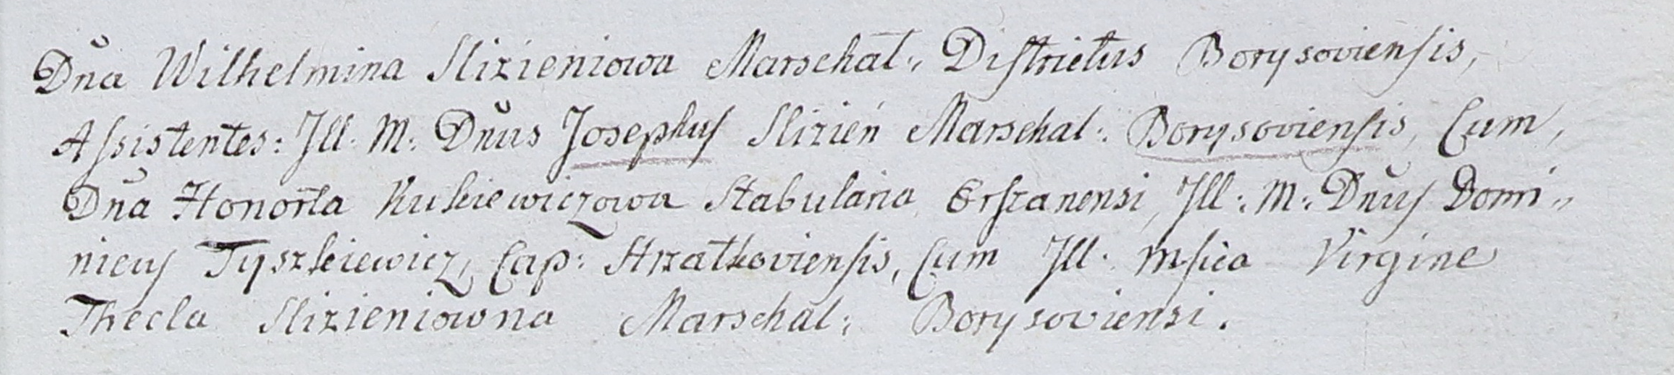 Dña Wilhelmina Slizieniowa Marschal:, Districtus Borysoviensis,
Assistentes: Ill. M: Dñus Josephus Slizień Marschal: Borysoviensis, Cum,
Dña Honorta Kukiewiczowa Stabularia Orszanensi, Ill: M: Dñus Domi:,
nicus Tyszkiewicz, Cap: Strzałkoviensis, Cum Ill. Msica Virgine
Thecla Slizieniowna Marschal: Borysoviensi.